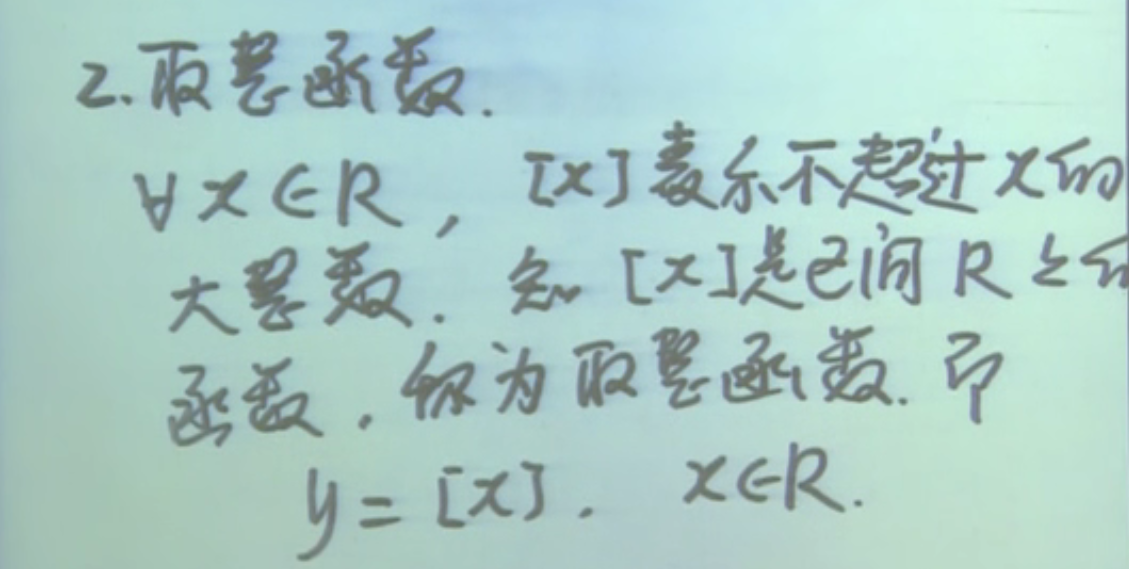 2.取整函数.
∀x∈R, [x]表示不超过x的
大整数.知[x]是区间R上的
函数.称为取整函数.即
y=[x]. x∈R.